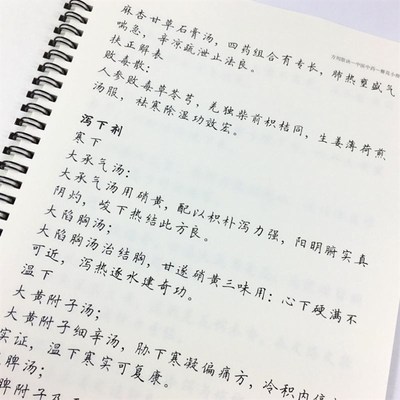 麻杏甘草石膏汤，四药组合有专长，肺热壅盛气
喘急，辛凉疏泄止法良。
扶正解表
败毒散：
人参败毒草苓芎，羌独柴前枳桔同，生姜薄荷煎
汤服，祛寒除湿功效宏。
泻下剂
寒下
大承气汤：
大承气汤用硝黄，配以枳朴泻力强，阳明腑实真
阴灼，峻下热结此方良。
大陷胸汤：
大陷胸汤治结胸，甘遂硝黄三味用；心下硬满不
可近，泻热逐水建奇功。
温下
大黄附子汤：
大黄附子细辛汤，胁下寒凝偏痛方，冷积内
实证，温下寒实可复康。
脾汤：
脾附子